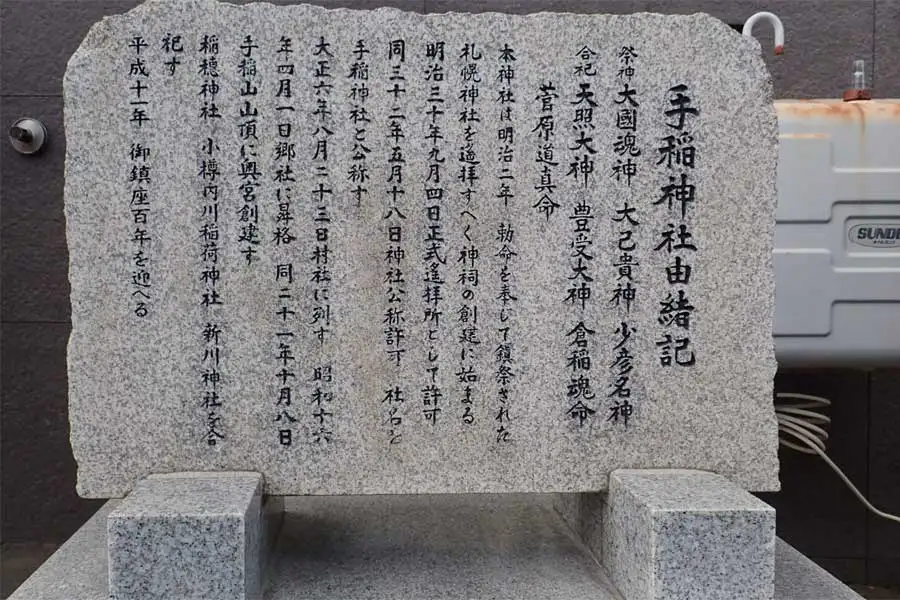 手稲神社由緒記
祭神 大國魂神 大己貴神 少彦名神
合祀 天照大神 豊受大神 倉稲魂命
菅原道真命
本神社は明治二年 勅命を奉じて鎭祭された
札幌神社を遙拝すべく神祠の創建に始まる
明治三十年九月四日正式遙拝所として許可
同三十二年五月十八日神社公称許可 社名を
手稲神社と公称す
大正六年八月二十三日村社に列す 昭和十六
年四月一日郷社に昇格 同二十一年十月八日
手稲山山頂に奥宮創建す
稲穂神社 小樽内川稲荷神社 新川神社を合
祀す
平成十一年 御鎮座百年を迎へる
SUNDE